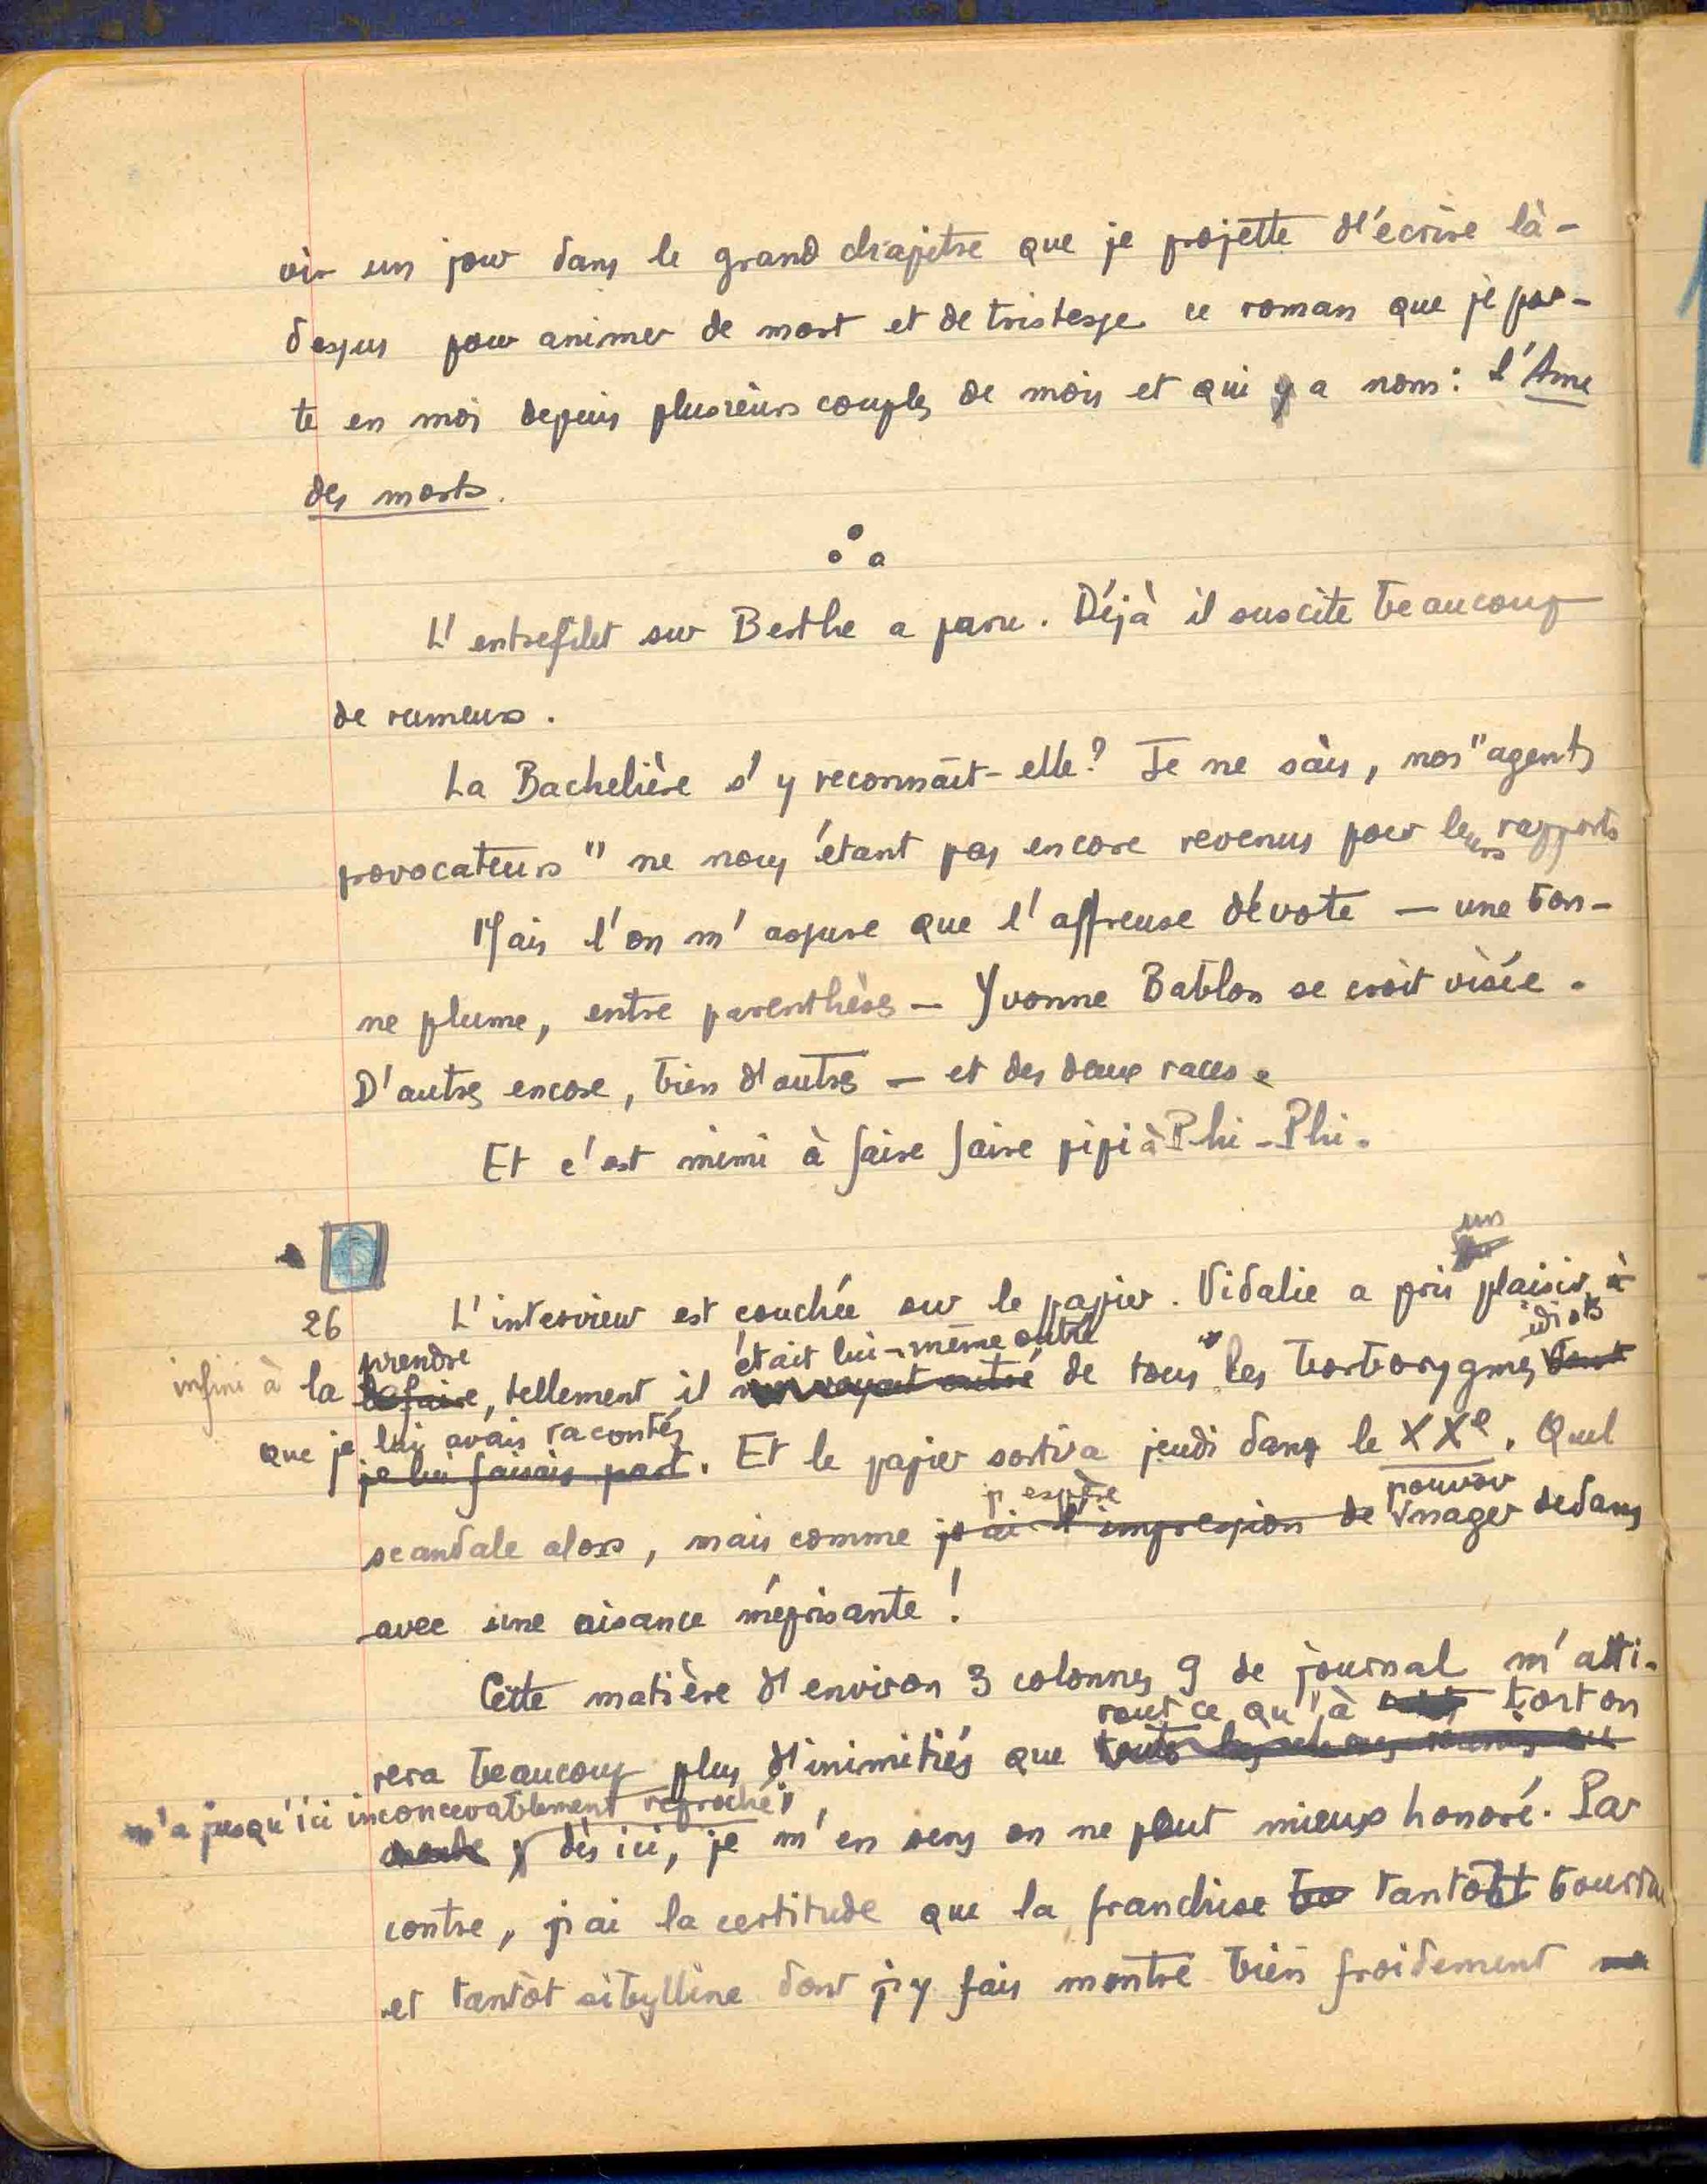 vir un jour dans le grand chapitre que je projette d'écrire là-
dessus pour animer de mort et de tristesse ce roman que je por-
te en moi depuis plusieurs couples de mois et qui a nom : l'Ame
des morts.
L'entrefilet sur Berthe a paru. Déjà il suscite beaucoup
de rumeurs.
La Bachelière s'y reconnaît-elle? Je ne sais, nos "agents
provocateurs" ne nous étant pas encore revenus pour leurs rapports
Mais l'on m'assure que l'affreuse dévote — une bon-
ne plume, entre parenthèses — Yvonne Bablon se croit visée.
D'autres encore, bien d'autres — et des deux races.
Et c'est mimi à faire faire pipi à Phi-Phi.
un
26 L'interview est couchée sur le papier. Vidalie a pris plaisir à
prendre était lui-même outré idiots
infini à la tellement il de tous les borborygmes dont
que je lui avais racontés
je lui faisais part. Et le papier sortira jeudi dans le XXe. Quel
j'espère pouvoir
scandale alors, mais comme j'ai l'impression de nager dedans
avec une aisance méprisante!
Cette matière d'environ 3 colonnes 9 de journal m'atti-
tout ce qu'à tort on
rera beaucoup plus d'inimitiés que
m'a jusqu'ici inconcevablement reproché,
dès ici, je m'en sens on ne peut mieux honoré. Par
contre, j'ai la certitude que la franchise tantôt bourrue
et tantôt sibylline dont j'y fais montre bien froidement